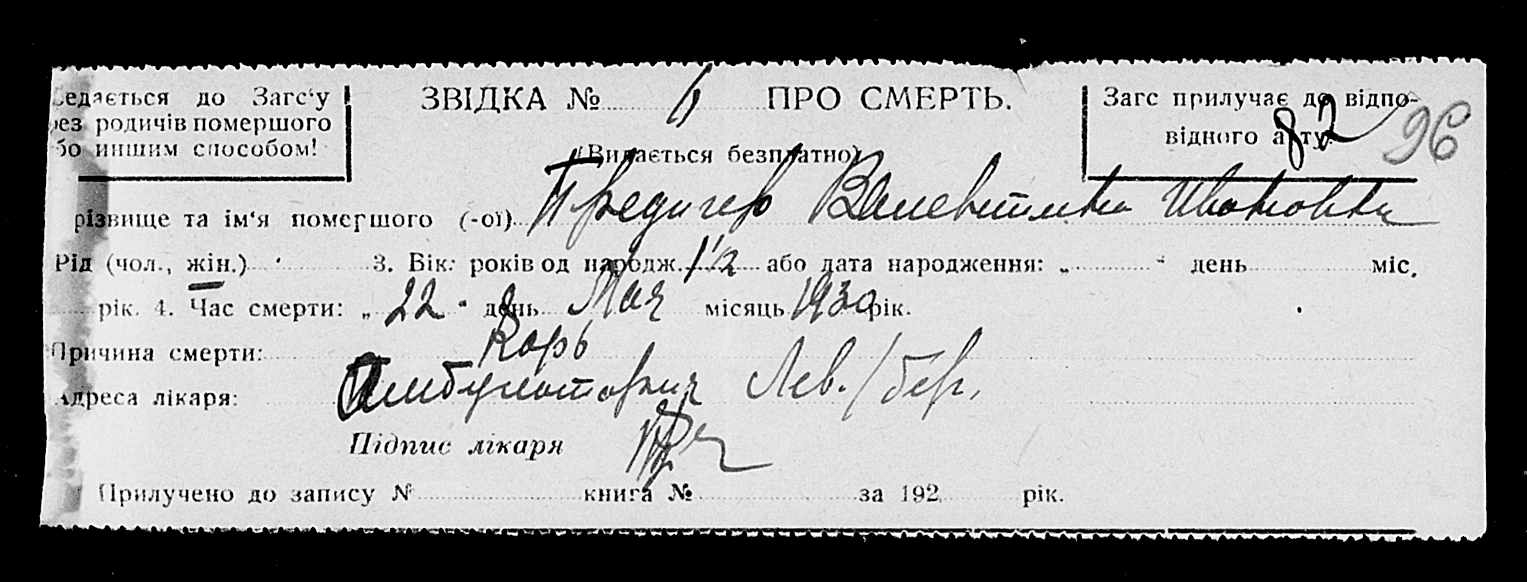 едається до Загс‘у
рез родичів помершого
бо иншим способом!
ЗВІДКА № ПРО СМЕРТЬ.
(Видається безплатно)
Загс прилучає до відпо-
відного акту.
82
96
різвище та ім‘я помершого (-ої) Предигер Валентина Ивановна
Рід (чол., жін.) 3. Вік: років од народж. 1½ або дата народження: „ “ день міс.
рік. 4. Час смерти: „22“ день Мая місяць 1930 рік.
Причина смерти: Корь
Адреса лікаря: Амбулатория Лев./бер.
Підпис лікаря
Прилучено до запису № книга № за 192 рік.